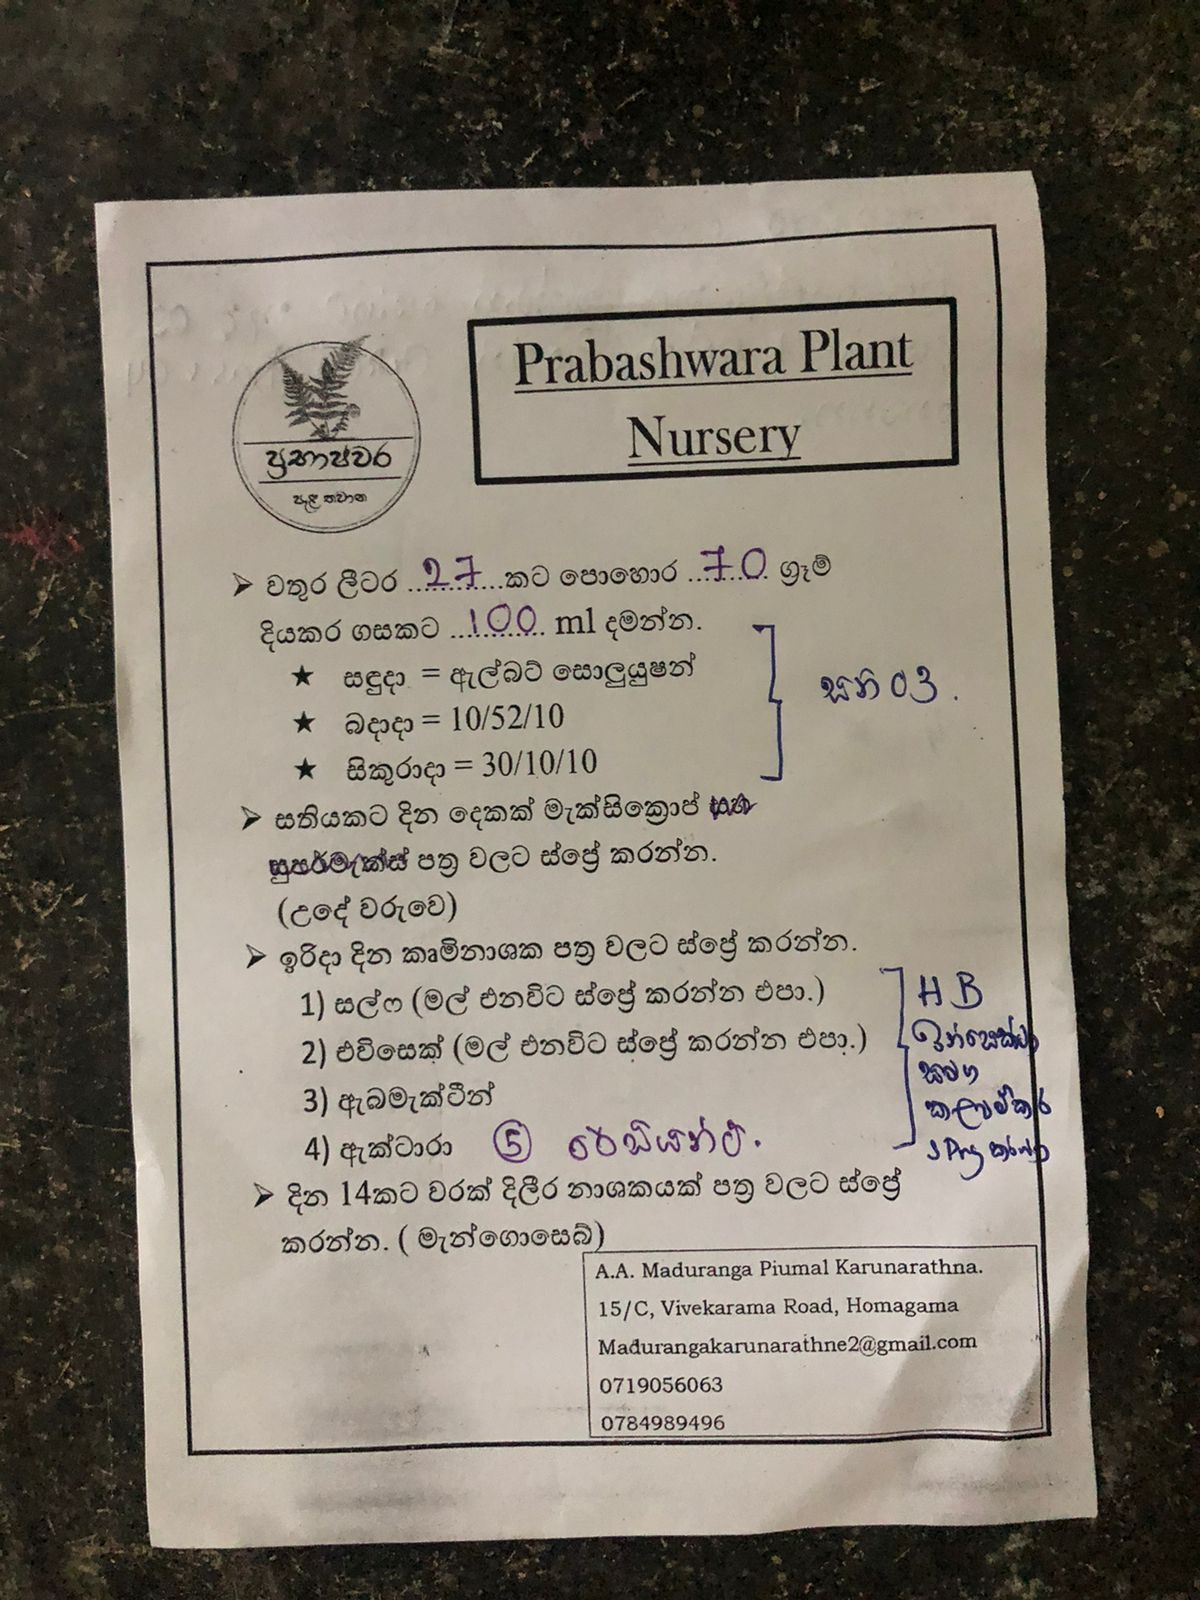 Prabashwara Plant
Nursery
ප්‍රභාෂ්වර
පැළ තවාන
➢ වතුර ලීටර ..27..කට පොහොර ..70.. ග්‍රෑම්
දියකර ගසකට ..100.. ml දමන්න.
★ සඳුදා = ඇල්බට් සොලුයුෂන්
★ බදාදා = 10/52/10
★ සිකුරාදා = 30/10/10
සති 03.
➢ සතියකට දින දෙකක් මැක්සික්‍රොප් සහ
සුපර්මැක්ස් පත්‍ර වලට ස්ප්‍රේ කරන්න.
(උදේ වරුවෙ)
➢ ඉරිදා දින කෘමිනාශක පත්‍ර වලට ස්ප්‍රේ කරන්න.
1) සල්ෆ (මල් එනවිට ස්ප්‍රේ කරන්න එපා.)
2) එවිසෙක් (මල් එනවිට ස්ප්‍රේ කරන්න එපා.)
3) ඇබමැක්ටීන්
4) ඇක්ටාරා ⑤ රේඩියන්ට්.
HB
සමග
කලවම්කර
spray කරන්න
➢ දින 14කට වරක් දිලීර නාශකයක් පත්‍ර වලට ස්ප්‍රේ
කරන්න. ( මැන්ගොසෙබ්)
A.A. Maduranga Piumal Karunarathna.
15/C, Vivekarama Road, Homagama
Madurangakarunarathne2@gmail.com
0719056063
0784989496